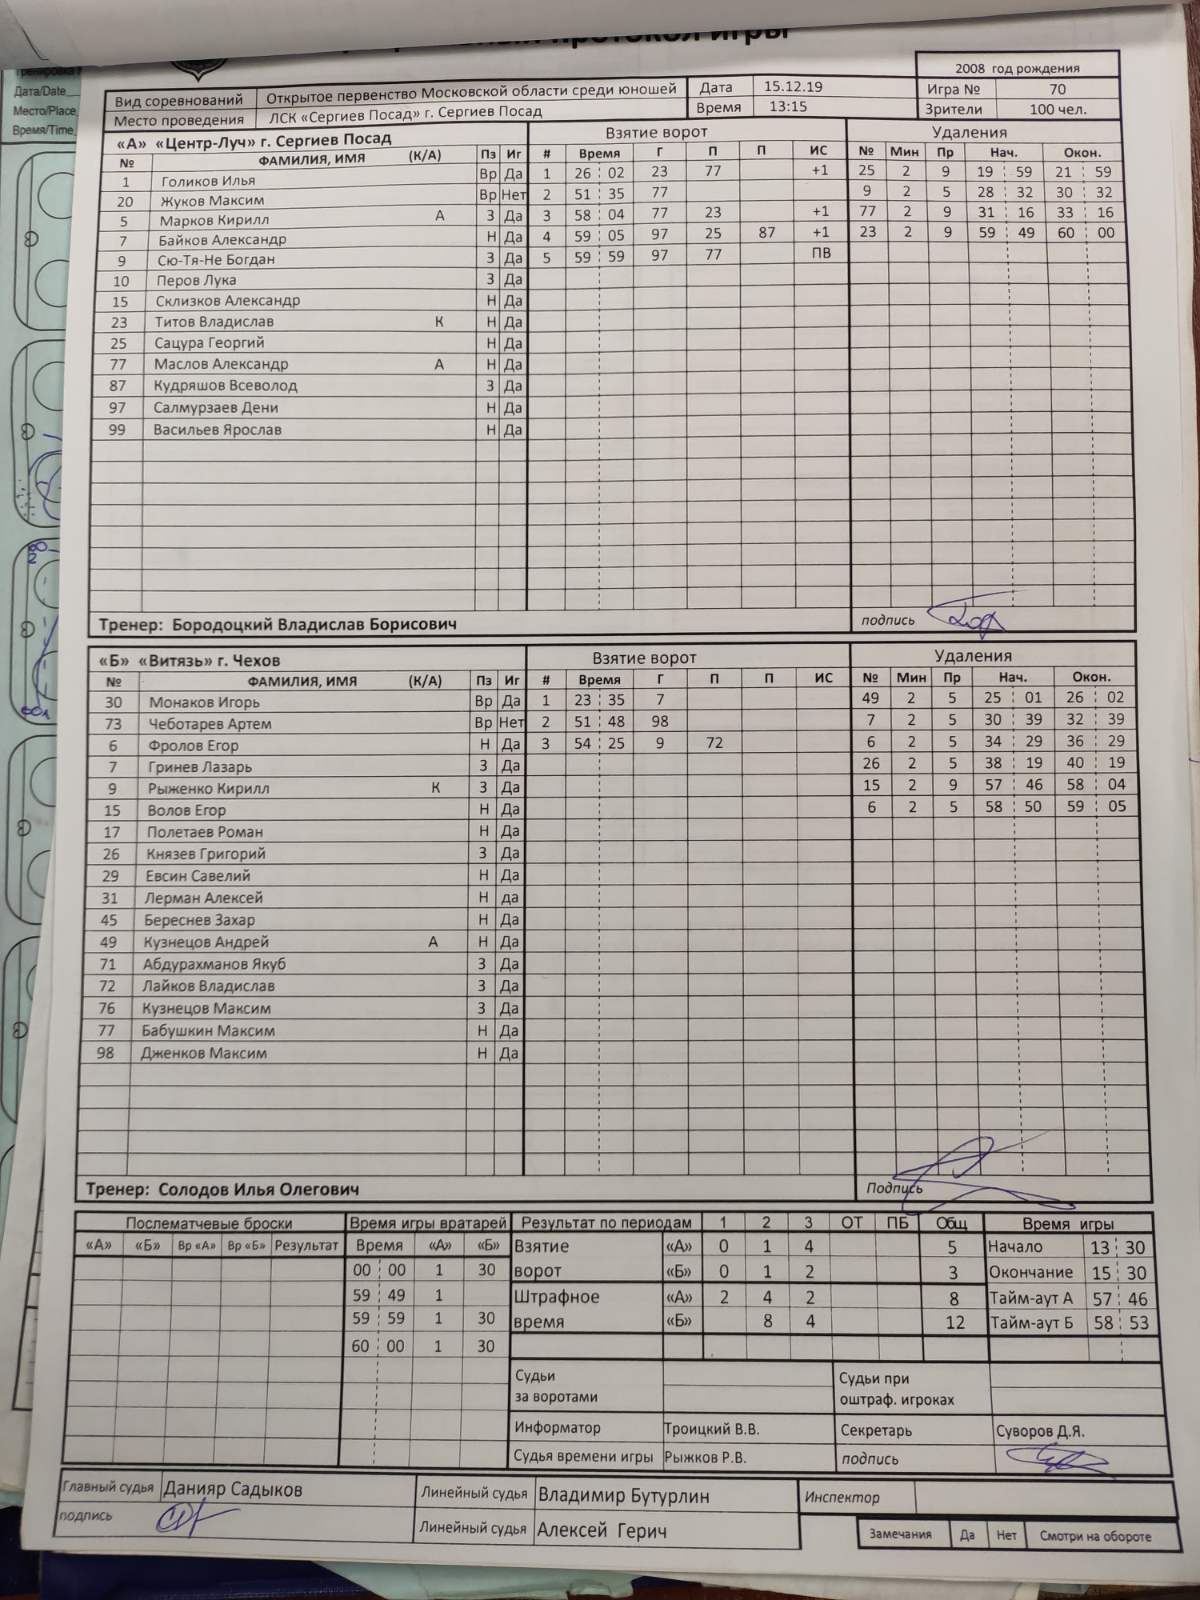 протокол игры
Тренировка
Дата/Date
Место/Place
Время/Time
2008 год рождения
Вид соревнований Открытое первенство Московской области среди юношей Дата 15.12.19 Игра № 70
Место проведения ЛСК «Сергиев Посад» г. Сергиев Посад Время 13:15 Зрители 100 чел.
«А» «Центр-Луч» г. Сергиев Посад Взятие ворот Удаления
№ ФАМИЛИЯ, ИМЯ (К/А) Пз Иг # Время Г П П ИС № Мин Пр Нач. Окон.
1 Голиков Илья Вр Да 1 26 02 23 77 +1 25 2 9 19 59 21 59
20 Жуков Максим Вр Нет 2 51 35 77 9 2 5 28 32 30 32
5 Марков Кирилл А З Да 3 58 04 77 23 +1 77 2 9 31 16 33 16
7 Байков Александр Н Да 4 59 05 97 25 87 +1 23 2 9 59 49 60 00
9 Сю-Тя-Не Богдан З Да 5 59 59 97 77 ПВ
10 Перов Лука З Да
15 Склизков Александр Н Да
23 Титов Владислав К Н Да
25 Сацура Георгий Н Да
77 Маслов Александр А Н Да
87 Кудряшов Всеволод З Да
97 Салмурзаев Дени Н Да
99 Васильев Ярослав Н Да
Тренер: Бородоцкий Владислав Борисович подпись
«Б» «Витязь» г. Чехов Взятие ворот Удаления
№ ФАМИЛИЯ, ИМЯ (К/А) Пз Иг # Время Г П П ИС № Мин Пр Нач. Окон.
30 Монаков Игорь Вр Да 1 23 35 7 49 2 5 25 01 26 02
73 Чеботарев Артем Вр Нет 2 51 48 98 7 2 5 30 39 32 39
6 Фролов Егор Н Да 3 54 25 9 72 6 2 5 34 29 36 29
7 Гринев Лазарь З Да 26 2 5 38 19 40 19
9 Рыженко Кирилл К З Да 15 2 9 57 46 58 04
15 Волов Егор Н Да 6 2 5 58 50 59 05
17 Полетаев Роман Н Да
26 Князев Григорий З Да
29 Евсин Савелий Н Да
31 Лерман Алексей Н Да
45 Береснев Захар Н Да
49 Кузнецов Андрей А Н Да
71 Абдурахманов Якуб З Да
72 Лайков Владислав З Да
76 Кузнецов Максим З Да
77 Бабушкин Максим Н Да
98 Дженков Максим Н Да
Тренер: Солодов Илья Олегович Подпись
Послематчевые броски Время игры вратарей Результат по периодам 1 2 3 ОТ ПБ Общ Время игры
«А» «Б» Вр «А» Вр «Б» Результат Время «А» «Б» Взятие ворот «А» 0 1 4 5 Начало 13 30
00 00 1 30 «Б» 0 1 2 3 Окончание 15 30
59 49 1 Штрафное время «А» 2 4 2 8 Тайм-аут А 57 46
59 59 1 30 «Б» 8 4 12 Тайм-аут Б 58 53
60 00 1 30
Судьи за воротами Судьи при оштраф. игроках
Информатор Троицкий В.В. Секретарь Суворов Д.Я.
Судья времени игры Рыжков Р.В. подпись
Главный судья Данияр Садыков Линейный судья Владимир Бутурлин Инспектор
подпись Линейный судья Алексей Герич Замечания Да Нет Смотри на обороте